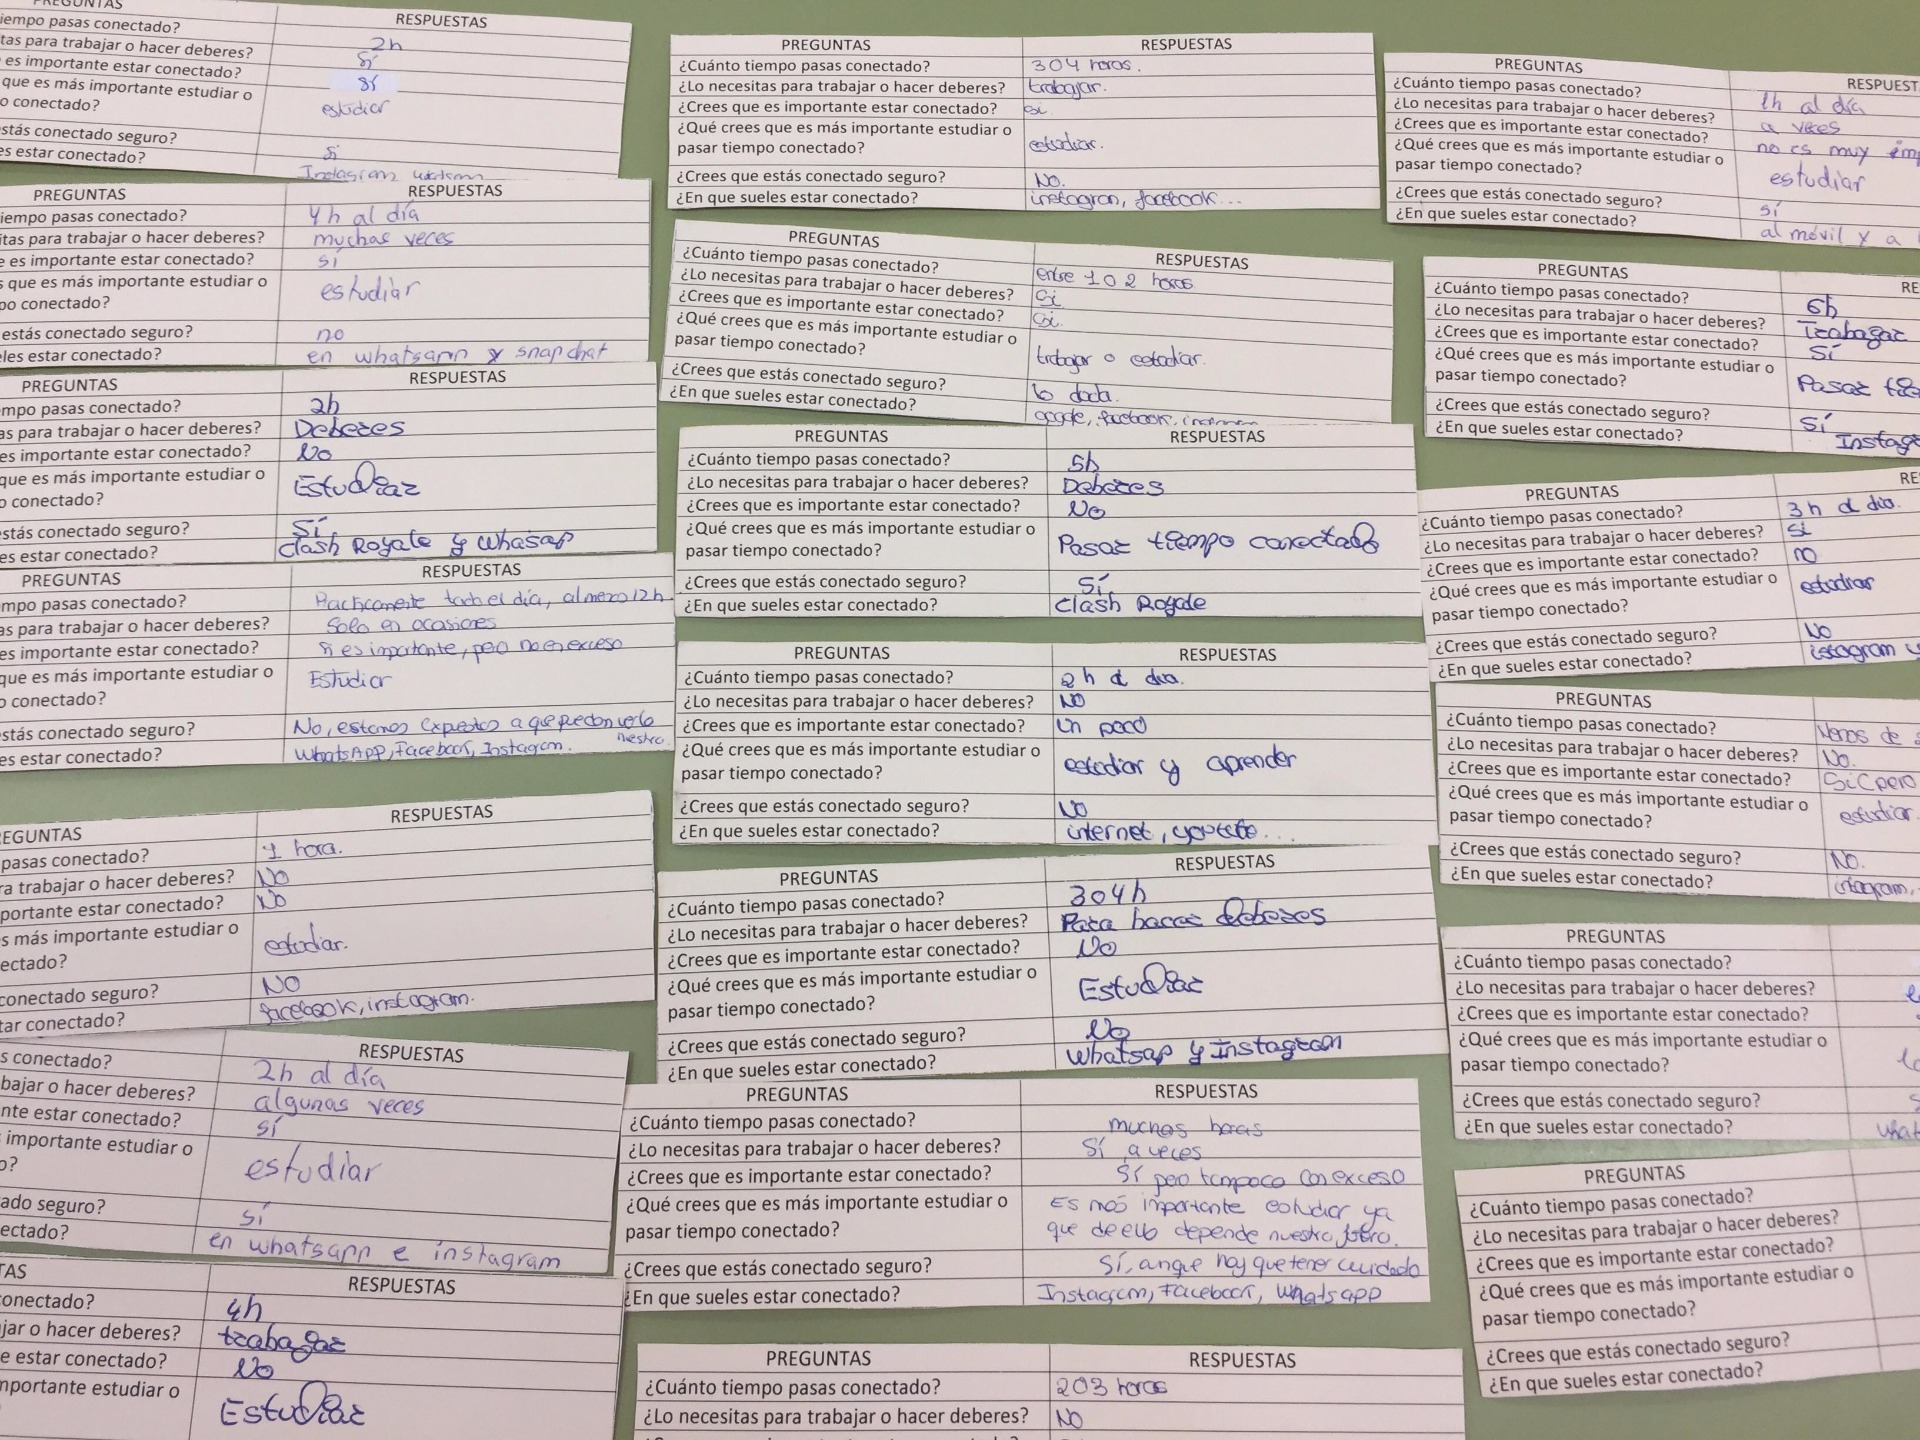 PREGUNTAS RESPUESTAS
iempo pasas conectado? 2h
tas para trabajar o hacer deberes? Sí
es importante estar conectado? Sí
que es más importante estudiar o
o conectado? estudiar
stás conectado seguro? Si
es estar conectado? Instagram
PREGUNTAS RESPUESTAS
iempo pasas conectado? 4h al día
itas para trabajar o hacer deberes? muchas veces
e es importante estar conectado? sí
s que es más importante estudiar o
po conectado? estudiar
estás conectado seguro? no
les estar conectado? en whatsapp y snapchat
PREGUNTAS RESPUESTAS
mpo pasas conectado? 2h
as para trabajar o hacer deberes? Deberes
es importante estar conectado? No
que es más importante estudiar o
o conectado? Estudiar
stás conectado seguro? Sí
es estar conectado? Clash Royale y Whasap
PREGUNTAS RESPUESTAS
mpo pasas conectado? Practicamente todo el día, al menos 12h
as para trabajar o hacer deberes? Solo en ocasiones
es importante estar conectado? Si es importante, pero no en exceso
que es más importante estudiar o
o conectado? Estudiar
stás conectado seguro? No, estamos expuestos a que puedan ver lo nuestro.
es estar conectado? WhatsApp, Facebook, Instagram.
REGUNTAS RESPUESTAS
pasas conectado? 1 hora.
ra trabajar o hacer deberes? NO
portante estar conectado? No
s más importante estudiar o
ectado? estudiar.
conectado seguro? NO
tar conectado? facebook, instagram.
RESPUESTAS
s conectado? 2h al día
bajar o hacer deberes? algunas veces
nte estar conectado? sí
importante estudiar o
o? estudiar
ado seguro? sí
ectado? en whatsapp e instagram
TAS RESPUESTAS
conectado? 4h
jar o hacer deberes? trabajar
e estar conectado? No
mportante estudiar o
Estudiar
PREGUNTAS RESPUESTAS
¿Cuánto tiempo pasas conectado? 3 o 4 horas.
¿Lo necesitas para trabajar o hacer deberes? trabajar.
¿Crees que es importante estar conectado? si.
¿Qué crees que es más importante estudiar o
pasar tiempo conectado? estudiar.
¿Crees que estás conectado seguro? No.
¿En que sueles estar conectado? instagran, facebook...
PREGUNTAS RESPUESTAS
¿Cuánto tiempo pasas conectado? entre 1 o 2 horas
¿Lo necesitas para trabajar o hacer deberes? Si
¿Crees que es importante estar conectado? Si.
¿Qué crees que es más importante estudiar o
pasar tiempo conectado? trabajar o estudiar.
¿Crees que estás conectado seguro? lo duda.
¿En que sueles estar conectado? google, facebook,
PREGUNTAS RESPUESTAS
¿Cuánto tiempo pasas conectado? 5h
¿Lo necesitas para trabajar o hacer deberes? Deberes
¿Crees que es importante estar conectado? No
¿Qué crees que es más importante estudiar o
pasar tiempo conectado? Pasar tiempo conectado
¿Crees que estás conectado seguro? Sí
¿En que sueles estar conectado? Clash Royale
PREGUNTAS RESPUESTAS
¿Cuánto tiempo pasas conectado? 2h al dia.
¿Lo necesitas para trabajar o hacer deberes? NO
¿Crees que es importante estar conectado? Un poco
¿Qué crees que es más importante estudiar o
pasar tiempo conectado? estudiar y aprender
¿Crees que estás conectado seguro? NO
¿En que sueles estar conectado? internet, youtube...
PREGUNTAS RESPUESTAS
¿Cuánto tiempo pasas conectado? 3 o 4h
¿Lo necesitas para trabajar o hacer deberes? Para hacer deberes
¿Crees que es importante estar conectado? No
¿Qué crees que es más importante estudiar o
pasar tiempo conectado? Estudiar
¿Crees que estás conectado seguro? No
¿En que sueles estar conectado? Whatsap y Instagram
PREGUNTAS RESPUESTAS
¿Cuánto tiempo pasas conectado? muchas horas
¿Lo necesitas para trabajar o hacer deberes? Sí, a veces
¿Crees que es importante estar conectado? Sí pero tampoco con exceso
¿Qué crees que es más importante estudiar o Es más importante estudiar ya
pasar tiempo conectado? que de ello depende nuestro futuro.
¿Crees que estás conectado seguro? Sí, aunque hay que tener cuidado
¿En que sueles estar conectado? Instagram, Facebook, Whatsapp
PREGUNTAS RESPUESTAS
¿Cuánto tiempo pasas conectado? 2 o 3 horas
¿Lo necesitas para trabajar o hacer deberes? NO
PREGUNTAS RESPUEST
¿Cuánto tiempo pasas conectado? 1h al día
¿Lo necesitas para trabajar o hacer deberes? a veces
¿Crees que es importante estar conectado? no es muy imp
¿Qué crees que es más importante estudiar o
pasar tiempo conectado? estudiar
¿Crees que estás conectado seguro? sí
¿En que sueles estar conectado? al móvil y a
PREGUNTAS RE
¿Cuánto tiempo pasas conectado? 6h
¿Lo necesitas para trabajar o hacer deberes? Trabajar
¿Crees que es importante estar conectado? Sí
¿Qué crees que es más importante estudiar o
pasar tiempo conectado? Pasar tie
¿Crees que estás conectado seguro? Sí
¿En que sueles estar conectado? Instag
PREGUNTAS RE
¿Cuánto tiempo pasas conectado? 3h al dia.
¿Lo necesitas para trabajar o hacer deberes? Si
¿Crees que es importante estar conectado? no
¿Qué crees que es más importante estudiar o
pasar tiempo conectado? estudiar
¿Crees que estás conectado seguro? No
¿En que sueles estar conectado? istagram y
PREGUNTAS
¿Cuánto tiempo pasas conectado? Menos de
¿Lo necesitas para trabajar o hacer deberes? No.
¿Crees que es importante estar conectado? Si (pero
¿Qué crees que es más importante estudiar o
pasar tiempo conectado? estudiar.
¿Crees que estás conectado seguro? No.
¿En que sueles estar conectado? istagram,
PREGUNTAS
¿Cuánto tiempo pasas conectado?
¿Lo necesitas para trabajar o hacer deberes?
¿Crees que es importante estar conectado?
¿Qué crees que es más importante estudiar o
pasar tiempo conectado?
¿Crees que estás conectado seguro? S
¿En que sueles estar conectado? what
PREGUNTAS
¿Cuánto tiempo pasas conectado?
¿Lo necesitas para trabajar o hacer deberes?
¿Crees que es importante estar conectado?
¿Qué crees que es más importante estudiar o
pasar tiempo conectado?
¿Crees que estás conectado seguro?
¿En que sueles estar conectado?